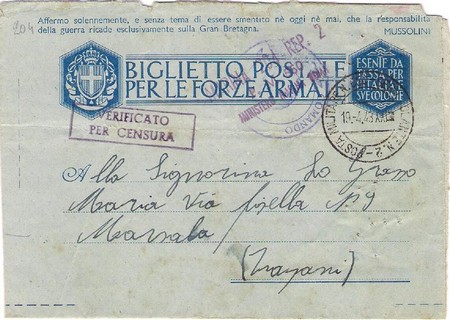 204
Affermo solennemente, e senza tema di essere smentito nè oggi nè mai, che la responsabilità
della guerra ricade esclusivamente sulla Gran Bretagna. MUSSOLINI
BIGLIETTO POSTALE
PER LE FORZE ARMATE
ESENTE DA
TASSA PER
L'ITALIA
SUE COLONIE
REP. 2
COMANDO
POSTA MILITARE N. 2
19.4.43.XXI
VERIFICATO
PER CENSURA
Alla Signorina Lo Grasso
Maria Via N 9
Marsala
(Trapani)